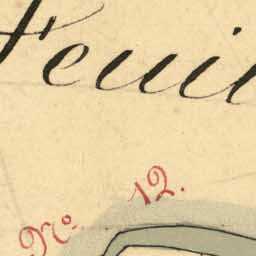 Feuil
N° 12.